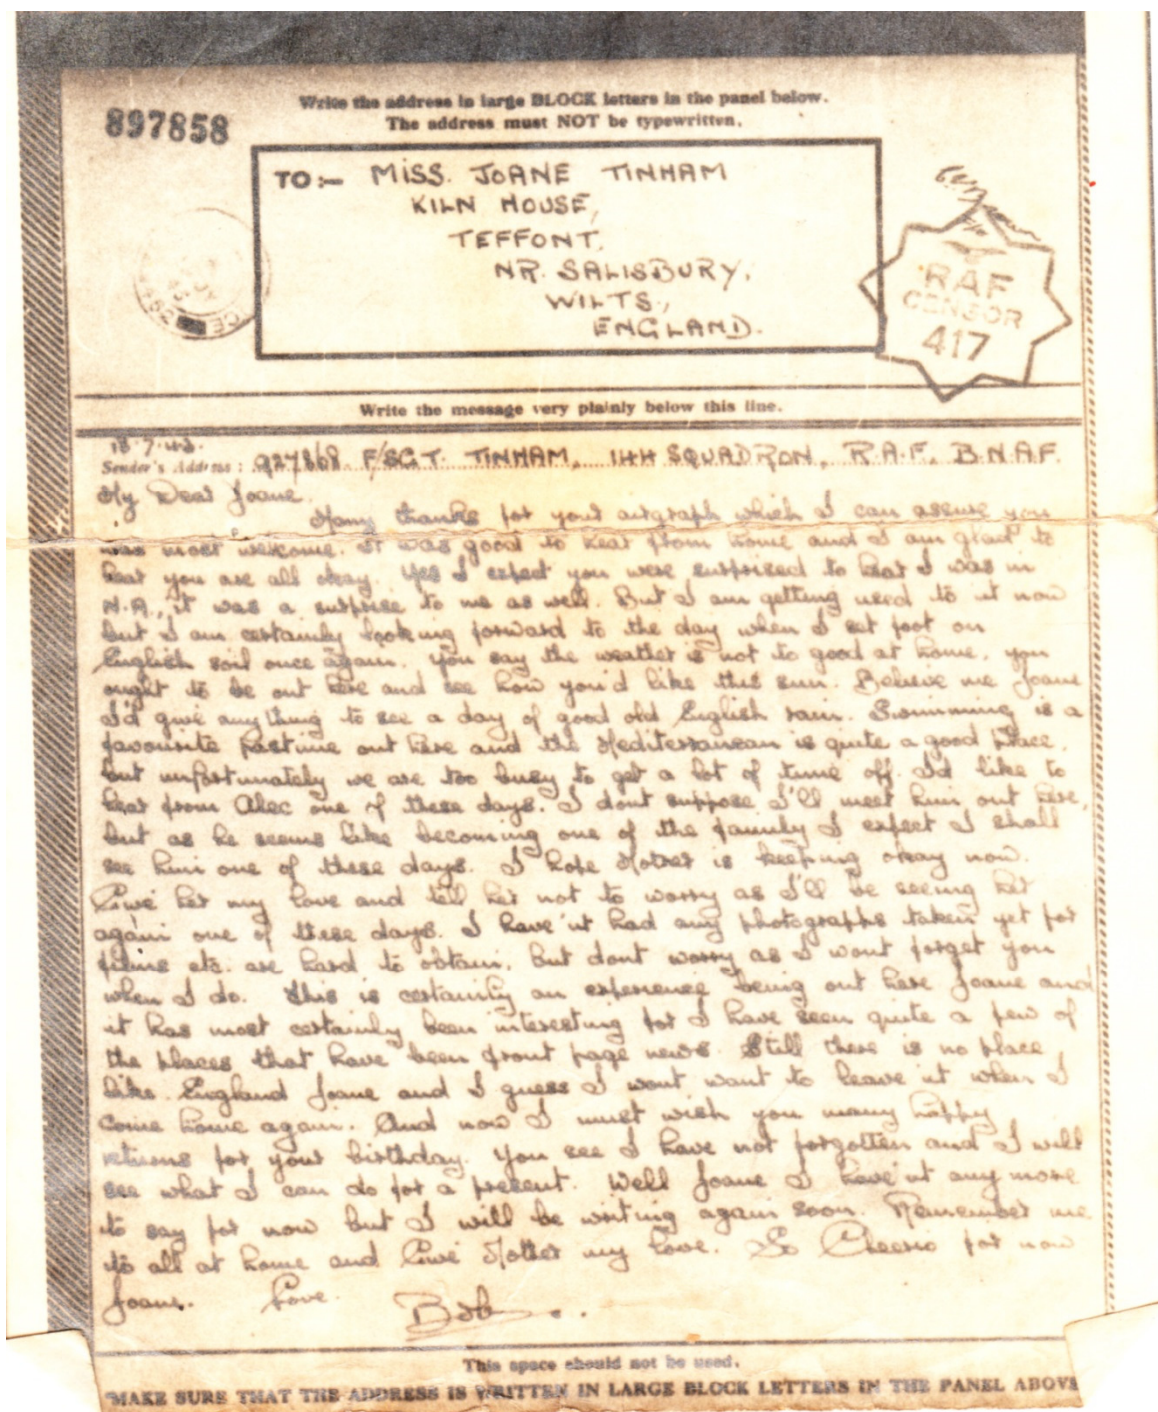 Write the address in large BLOCK letters in the panel below.
The address must NOT be typewritten.
897858
TO:- MISS. JOANE TINHAM
KILN HOUSE,
TEFFONT,
NR. SALISBURY,
WILTS.,
ENGLAND.
RAF
CENSOR
417
Write the message very plainly below this line.
18.7.43.
Sender's Address: 927868 F/SGT. TINHAM, 144 SQUADRON, R.A.F. B.N.A.F.
My Dear Joane.
Many thanks for your airgraph which I can assure you
was most welcome. It was good to hear from home and I am glad to
hear you are all okay. Yes I expect you were surprised to hear I was in
N.A., it was a surprise to me as well. But I am getting used to it now
but I am certainly looking forward to the day when I set foot on
English soil once again. You say the weather is not to good at home, you
ought to be out here and see how you'd like this sun. Believe me Joane
I'd give anything to see a day of good old English rain. Swimming is a
favourite pastime out here and the Mediterranean is quite a good place,
but unfortunately we are too busy to get a lot of time off. I'd like to
hear from Alec one of these days. I dont suppose I'll meet him out here,
but as he seems like becoming one of the family I expect I shall
see him one of these days. I hope Mother is keeping okay now.
Give her my love and tell her not to worry as I'll be seeing her
again one of these days. I have'nt had any photographs taken yet for
films etc. are hard to obtain, but dont worry as I wont forget you
when I do. This is certainly an experience being out here Joane and
it has most certainly been interesting for I have seen quite a few of
the places that have been front page news. Still there is no place
like England Joane and I guess I wont want to leave it when I
come home again. And now I must wish you many happy
returns for your birthday. You see I have not forgotten and I will
see what I can do for a present. Well Joane I have'nt any more
to say for now but I will be writing again soon. Remember me
to all at home and Give Mother my love. So Cheerio for now
Joane. Love.
Bob.
This space should not be used.
MAKE SURE THAT THE ADDRESS IS WRITTEN IN LARGE BLOCK LETTERS IN THE PANEL ABOVE